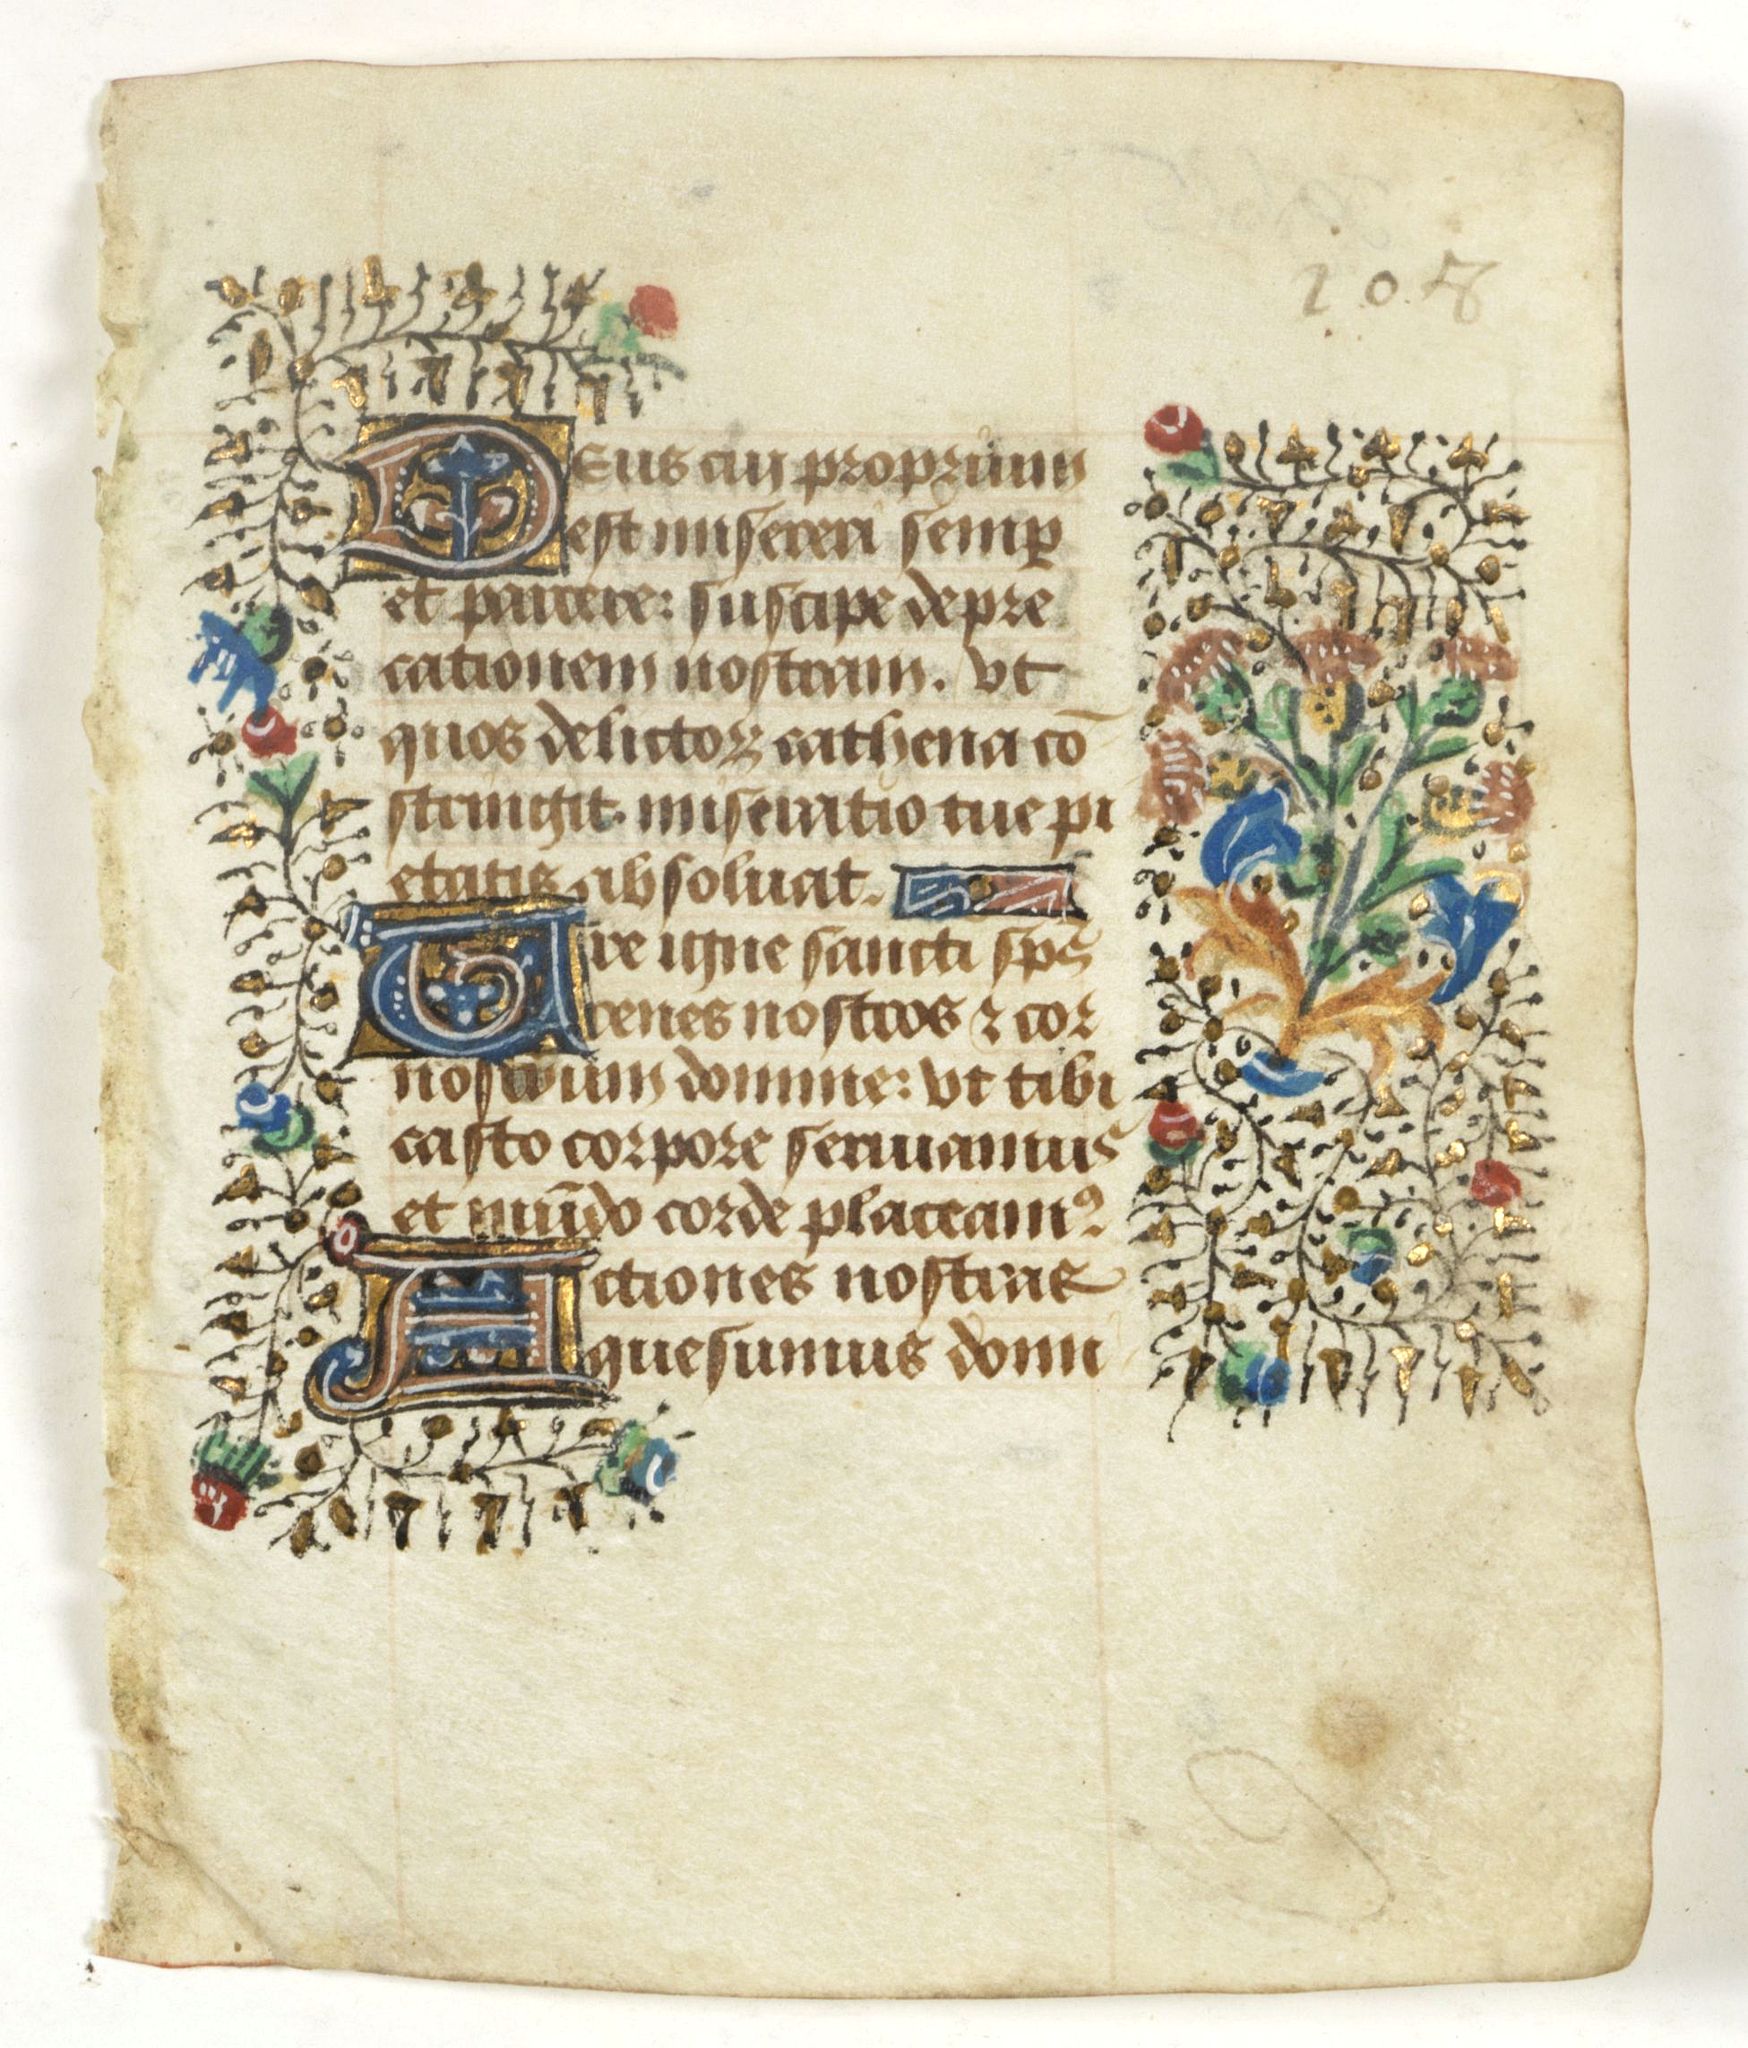 108
Deus cui proprium
est misereri semꝑ
et parcere: suscipe depre
cationem nostram. vt
quos delictoꝝ cathena cō
stringit. miseratio tue pi
etatis absoluat.
Ure igne sancti sp̄s
renes nostros ⁊ cor
nostrum domine: vt tibi
casto corpore seruiamus
et mūdo corde placeamꝰ
Actiones nostras
quesumus domi